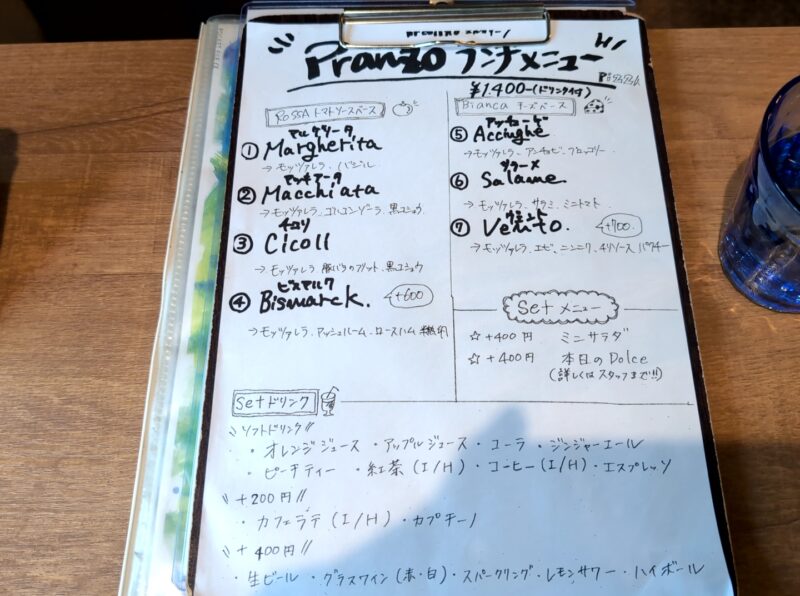 Pranzo ランチメニュー
Pizza
¥1,400-(ドリンク付)
ROSSA トマトソースベース
マルゲリータ
① Margherita
→ モッツァレラ、バジル
マッキアータ
② Macchiata
→ モッツァレラ、ゴルゴンゾーラ、黒コショウ
チコリ
③ Cicoli
→ モッツァレラ、豚バラのフリット、黒コショウ
ビスマルク
④ Bismarck. +600
→ モッツァレラ、マッシュルーム、ロースハム、半熟卵
Bianca チーズベース
アッチューゲ
⑤ Acciughe
→ モッツァレラ、アンチョビ、ブロッコリー
サラーメ
⑥ Salame
→ モッツァレラ、サラミ、ミニトマト
⑦ +700.
→ モッツァレラ、エビ、ニンニク、チリソース、パクチー
Set メニュー
☆ +400円 ミニサラダ
☆ +400円 本日のDolce
(詳しくはスタッフまで!!)
Set ドリンク
\\ ソフトドリンク //
・オレンジジュース ・アップルジュース ・コーラ ・ジンジャーエール
・ピーチティー ・紅茶(I/H) ・コーヒー(I/H) ・エスプレッソ
\\ +200円 //
・カフェラテ(I/H) ・カプチーノ
\\ +400円 //
・生ビール ・グラスワイン(赤・白) ・スパークリング ・レモンサワー ・ハイボール